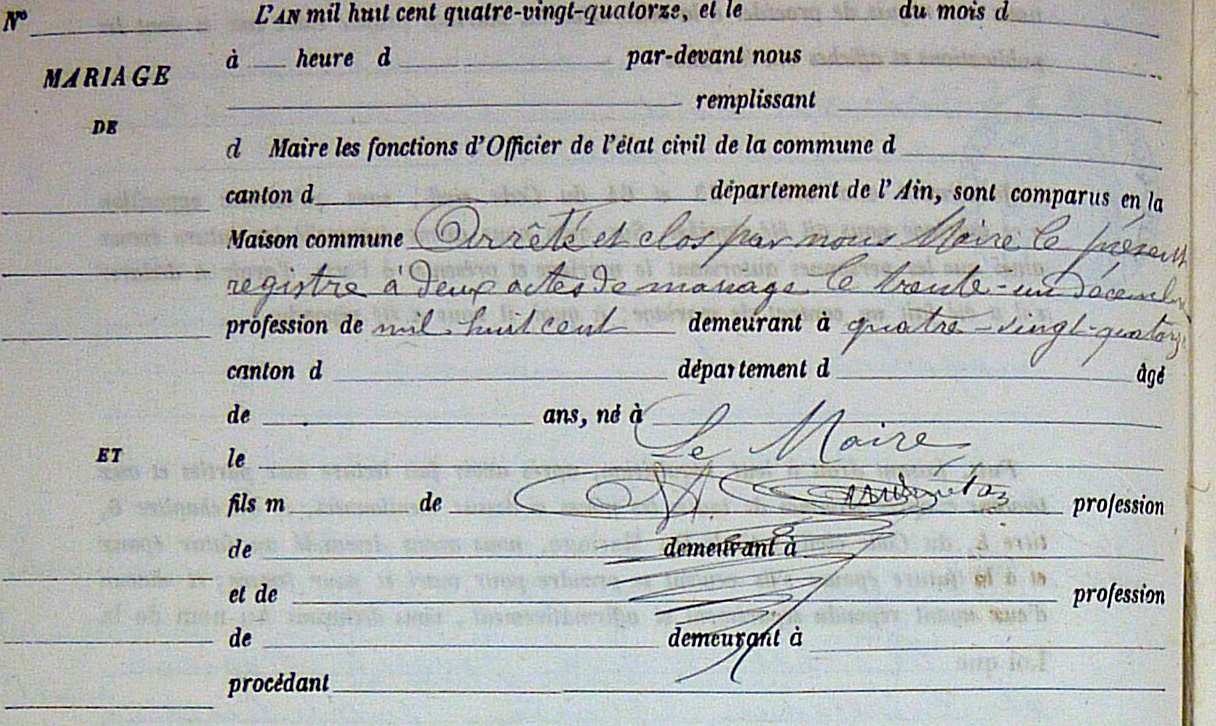 N° L'AN mil huit cent quatre-vingt-quatorze, et le du mois d
à heure d par-devant nous
MARIAGE
remplissant
DE
d Maire les fonctions d'Officier de l'état civil de la commune d
canton d département de l'Ain, sont comparus en la
Maison commune Arrêté et clos par nous Maire le présent
registre à deux actes de mariage le trente-un décembre
profession de mil huit cent demeurant à quatre-vingt-quatorze
canton d département d âgé
de ans, né à
ET le Le Maire
fils m de profession
de demeurant à
et de profession
de demeurant à
procédant